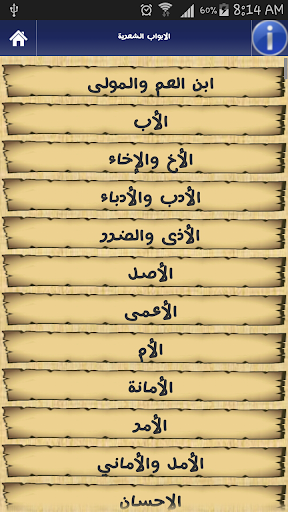 60% 8:14 AM
الابواب الشعرية
ابن العم والمولى
الأب
الأخ والإخاء
الأدب والأدباء
الأذى والضرر
الأصل
الأعمى
الأم
الأمانة
الأمد
الأمل والأماني
الإحسان